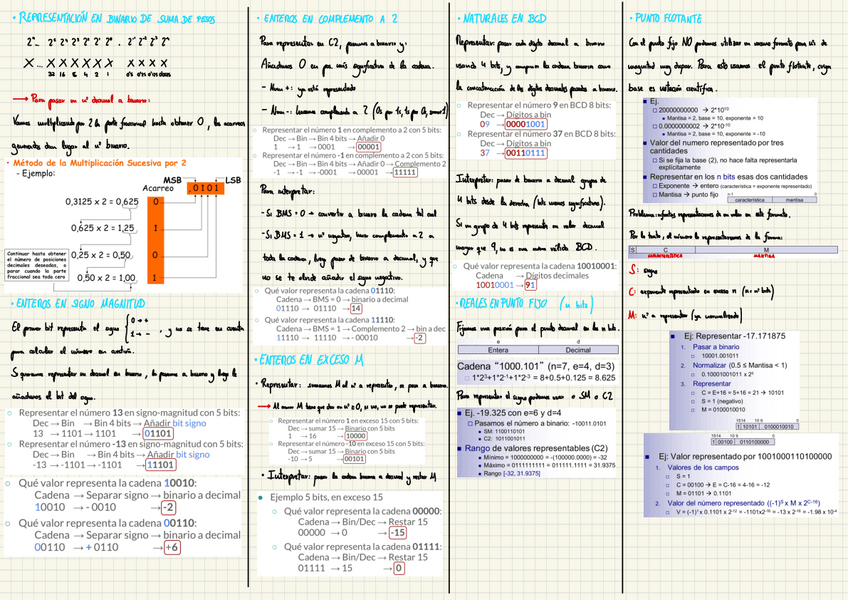 • REPRESENTACIÓN EN BINARIO DE SUMA DE PESOS
X... X X X X X X . X X X X
32 16 8 4 2 1
→ Para pasar en nº decimal a binario:
Vamos multiplicando por 2 la parte fraccional hasta obtener 0, los acarreos
generados dan lugar al nº binario.
• Método de la Multiplicación Sucesiva por 2
- Ejemplo:
MSB LSB
Acarreo 0 1 0 1
0,3125 x 2 = 0,625 0
0,625 x 2 = 1,25 1
0,25 x 2 = 0,50 0
0,50 x 2 = 1,00 1
Continuar hasta obtener
el número de posiciones
decimales deseadas, o
parar cuando la parte
fraccional sea todo cero
• ENTEROS EN SIGNO MAGNITUD
El primer bit representa el signo { 0 → +
1 → - , y no se tiene en cuenta
para calcular el número en cuestión.
Si queremos representar un decimal en binario, lo pasamos a binario y luego le
añadimos el bit del signo.
Representar el número 13 en signo-magnitud con 5 bits:
Dec → Bin → Bin 4 bits → Añadir bit signo
13 → 1101 → 1101 → 01101
Representar el número -13 en signo-magnitud con 5 bits:
Dec → Bin → Bin 4 bits → Añadir bit signo
-13 → -1101 → -1101 → 11101
Qué valor representa la cadena 10010:
Cadena → Separar signo → binario a decimal
10010 → - 0010 → -2
Qué valor representa la cadena 00110:
Cadena → Separar signo → binario a decimal
00110 → + 0110 → +6
• ENTEROS EN COMPLEMENTO A 2
Para representar en C2, pasamos a binario y:
Añadimos 0 en pos más significativa de la cadena.
- Num +: ya está representado
- Num -: hacemos complemento a 2 (0s por 1s, 1s por 0s, suma 1)
Representar el número 1 en complemento a 2 con 5 bits:
Dec → Bin → Bin 4 bits → Añadir 0
1 → 1 → 0001 → 00001
Representar el número -1 en complemento a 2 con 5 bits:
Dec → Bin → Bin 4 bits → Añadir 0 → Complemento 2
-1 → -1 → -0001 → -00001 → 11111
Para interpretar:
- Si BMS = 0 → convertir a binario la cadena tal cual
- Si BMS = 1 → nº negativo, hacer complemento a 2 a
toda la cadena, luego pasar de binario a decimal, y que
no se te olvide añadir el signo negativo.
Qué valor representa la cadena 01110:
Cadena → BMS = 0 → binario a decimal
01110 → 01110 → 14
Qué valor representa la cadena 11110:
Cadena → BMS = 1 → Complemento 2 → bin a dec
11110 → 11110 → - 00010 → -2
• ENTEROS EN EXCESO M
• Representar: sumamos M al nº a representar, se pasa a binario.
Representar el número 1 en exceso 15 con 5 bits:
Dec → sumar 15 → Binario con 5 bits
1 → 16 → 10000
Representar el número -10 en exceso 15 con 5 bits:
Dec → sumar 15 → Binario con 5 bits
-10 → 5 → 00101
• Interpretar: pasar la cadena binaria a decimal y restar M
Ejemplo 5 bits, en exceso 15
Qué valor representa la cadena 00000:
Cadena → Bin/Dec → Restar 15
00000 → 0 → -15
Qué valor representa la cadena 01111:
Cadena → Bin/Dec → Restar 15
01111 → 15 → 0
• NATURALES EN BCD
Representar: pasar cada dígito decimal a binario
usando 4 bits, y componer la cadena binaria con
la concatenación de los dígitos decimales pasados a binario.
Representar el número 9 en BCD 8 bits:
Dec → Dígitos a bin
09 → 00001001
Representar el número 37 en BCD 8 bits:
Dec → Dígitos a bin
37 → 00110111
Interpretar: pasar de binario a decimal grupos de
4 bits desde la derecha (bits menos significativos).
Si un grupo de 4 bits representa un valor decimal
mayor que 9, no es una cadena válida BCD.
Qué valor representa la cadena 10010001:
Cadena → Dígitos decimales
10010001 → 91
• REALES EN PUNTO FIJO (n bits)
Fijamos una posición para el punto decimal en los n bits.
e d
Entera Decimal
Cadena "1000.101" (n=7, e=4, d=3)
1*2³+1*2⁻¹+1*2⁻³ = 8+0.5+0.125 = 8.625
Para representar el signo podemos usar o SM o C2
Ej. -19.325 con e=6 y d=4
Pasamos el número a binario: -10011.0101
SM: 1100110101
C2: 1011001011
Rango de valores representables (C2)
Mínimo = 1000000000 = -(100000.0000) = -32
Máximo = 0111111111 = 011111.1111 = 31.9375
Rango [-32, 31.9375]
• PUNTO FLOTANTE
Con el punto fijo NO podemos utilizar un mismo formato para nºs de
magnitud muy dispar. Para esto usamos el punto flotante, cuya
base es notación científica.
Ej.
20000000000 → 2*10¹⁰
Mantisa = 2, base = 10, exponente = 10
0.0000000002 → 2*10⁻¹⁰
Mantisa = 2, base = 10, exponente = -10
Valor del numero representado por tres
cantidades
Si se fija la base (2), no hace falta representarla
explícitamente
Representar en los n bits esas dos cantidades
Exponente → entero (característica = exponente representado)
Mantisa → punto fijo
característica mantisa
Problema: infinitas representaciones de un valor en este formato.
Por lo tanto, el número lo representaremos de la forma:
S C M
CARACTERÍSTICA MANTISA
S: signo
C: exponente representado en exceso
M: nº a representar (ya normalizado)
Ej: Representar -17.171875
1. Pasar a binario
10001.001011
2. Normalizar (0.5 ≤ Mantisa < 1)
0.10001001011 x 2⁵
3. Representar
C = E+16 = 5+16 = 21 → 10101
S = 1 (negativo)
M = 0100010010
1514 10 9 0
1 10101 0100010010
1514 10 9 0
1 00100 0110100000
Ej: Valor representado por 1001000110100000
1. Valores de los campos
S = 1
C = 00100 → E = C-16 = 4-16 = -12
M = 01101 → 0.1101
2. Valor del número representado ((-1)ˢ x M x 2ᶜ⁻¹⁶)
V = (-1)¹ x 0.1101 x 2⁻¹² = -1101x2⁻¹⁶ = -13 x 2⁻¹⁶ = -1.98 x 10⁻⁴